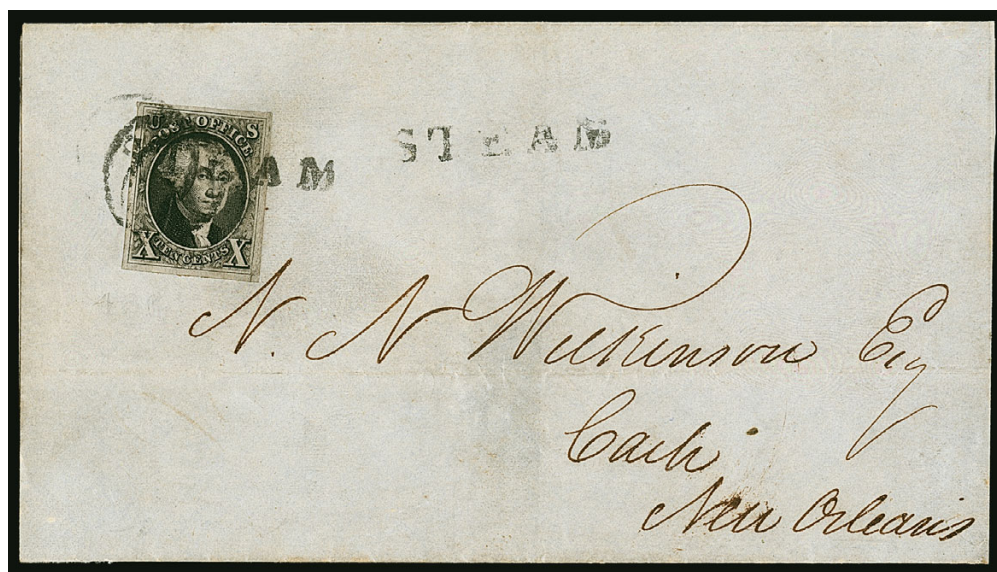 U S
POST OFFICE
X TEN CENTS X
AM
STEAM
N. N Wilkinson Esq
Cash
New Orleans